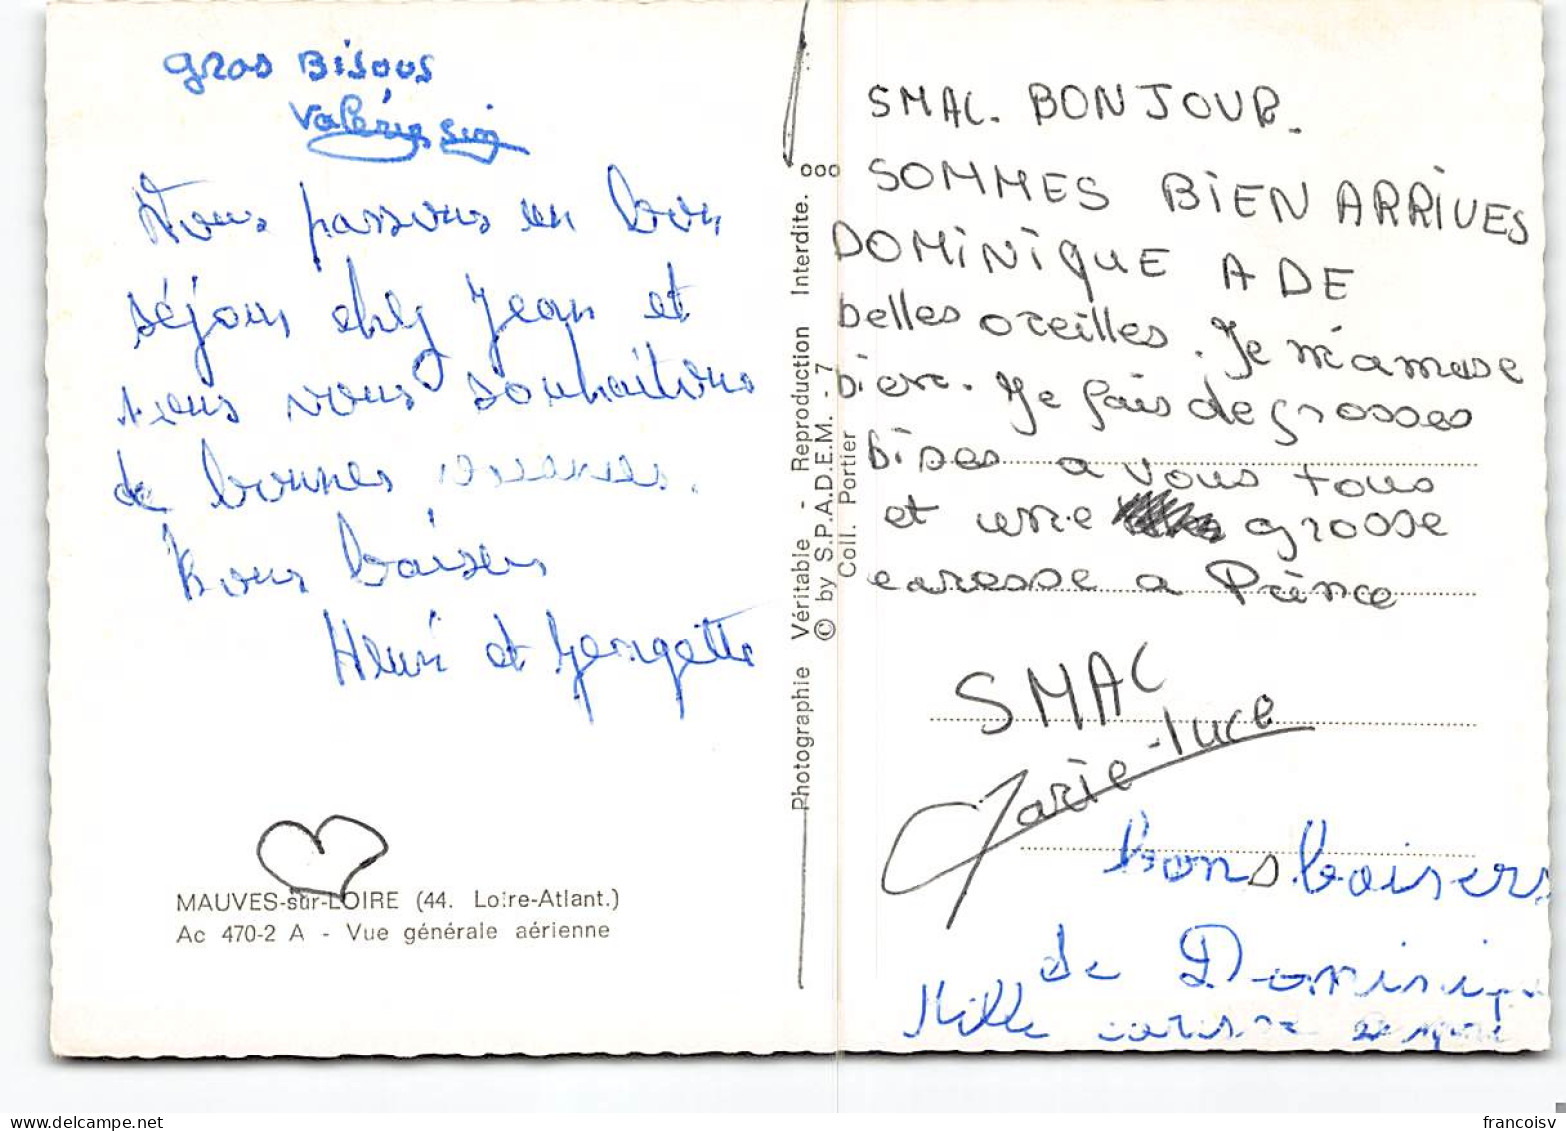 Gros Bisous
Valérie
Nous passons un bon
séjour chez Jean et
nous vous souhaitons
de bonnes
Bons baisers
Henri et Georgette
MAUVES-sur-LOIRE (44. Loire-Atlant.)
Ac 470-2 A - Vue générale aérienne
Photographie Véritable - Reproduction Interdite. ooo
© by S.P.A.D.E.M. - 7
Coll. Portier
SMAC. BONJOUR.
SOMMES BIEN ARRIVES
DOMINIQUE A DE
belles oreilles. Je m'amuse
bien. Je fais de grosses
bises a vous tous
et une grosse
caresse a Prince
SMAC
Marie-Luce
bons baisers
de Dominique
Mille
francoisv